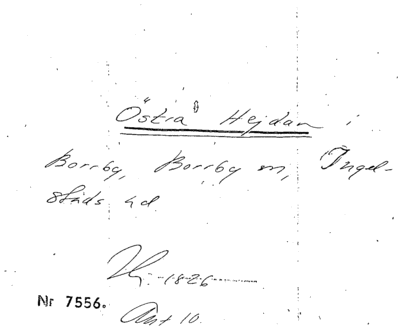 Östra Hejdan i
Borrby, Borrby sn, Ingel-
stads hd.
1826
Nr 7556.
Ant 10.